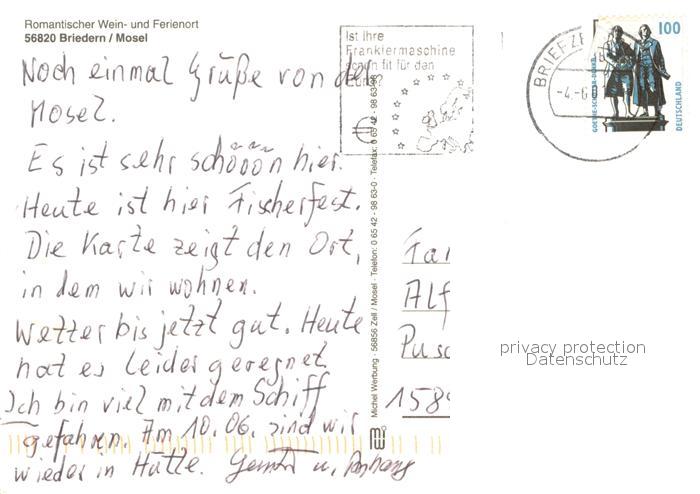 Romantischer Wein- und Ferienort
56820 Briedern / Mosel
Noch einmal Grüße von der
Mosel.
Es ist sehr schöön hier.
Heute ist hier Fischerfest.
Die Karte zeigt den Ort,
in dem wir wohnen.
Wetter bis jetzt gut. Heute
hat es leider geregnet.
Ich bin viel mit dem Schiff
gefahren. Am 10.06. sind wir
wieder in Hütte. u. Anhang
Michel Werbung · 56856 Zell / Mosel · Telefon: 0 65 42 - 98 63-0 · Telefax: 0 65 42 - 98 63-98
Ist Ihre
Frankiermaschine
schon fit für den
Euro?
€
BRIEFZE
-4.-6.0
100
GOETHE-SCHILLER-DENKMAL
DEUTSCHLAND
Fa
Alf
Pusc
158
privacy protection
Datenschutz